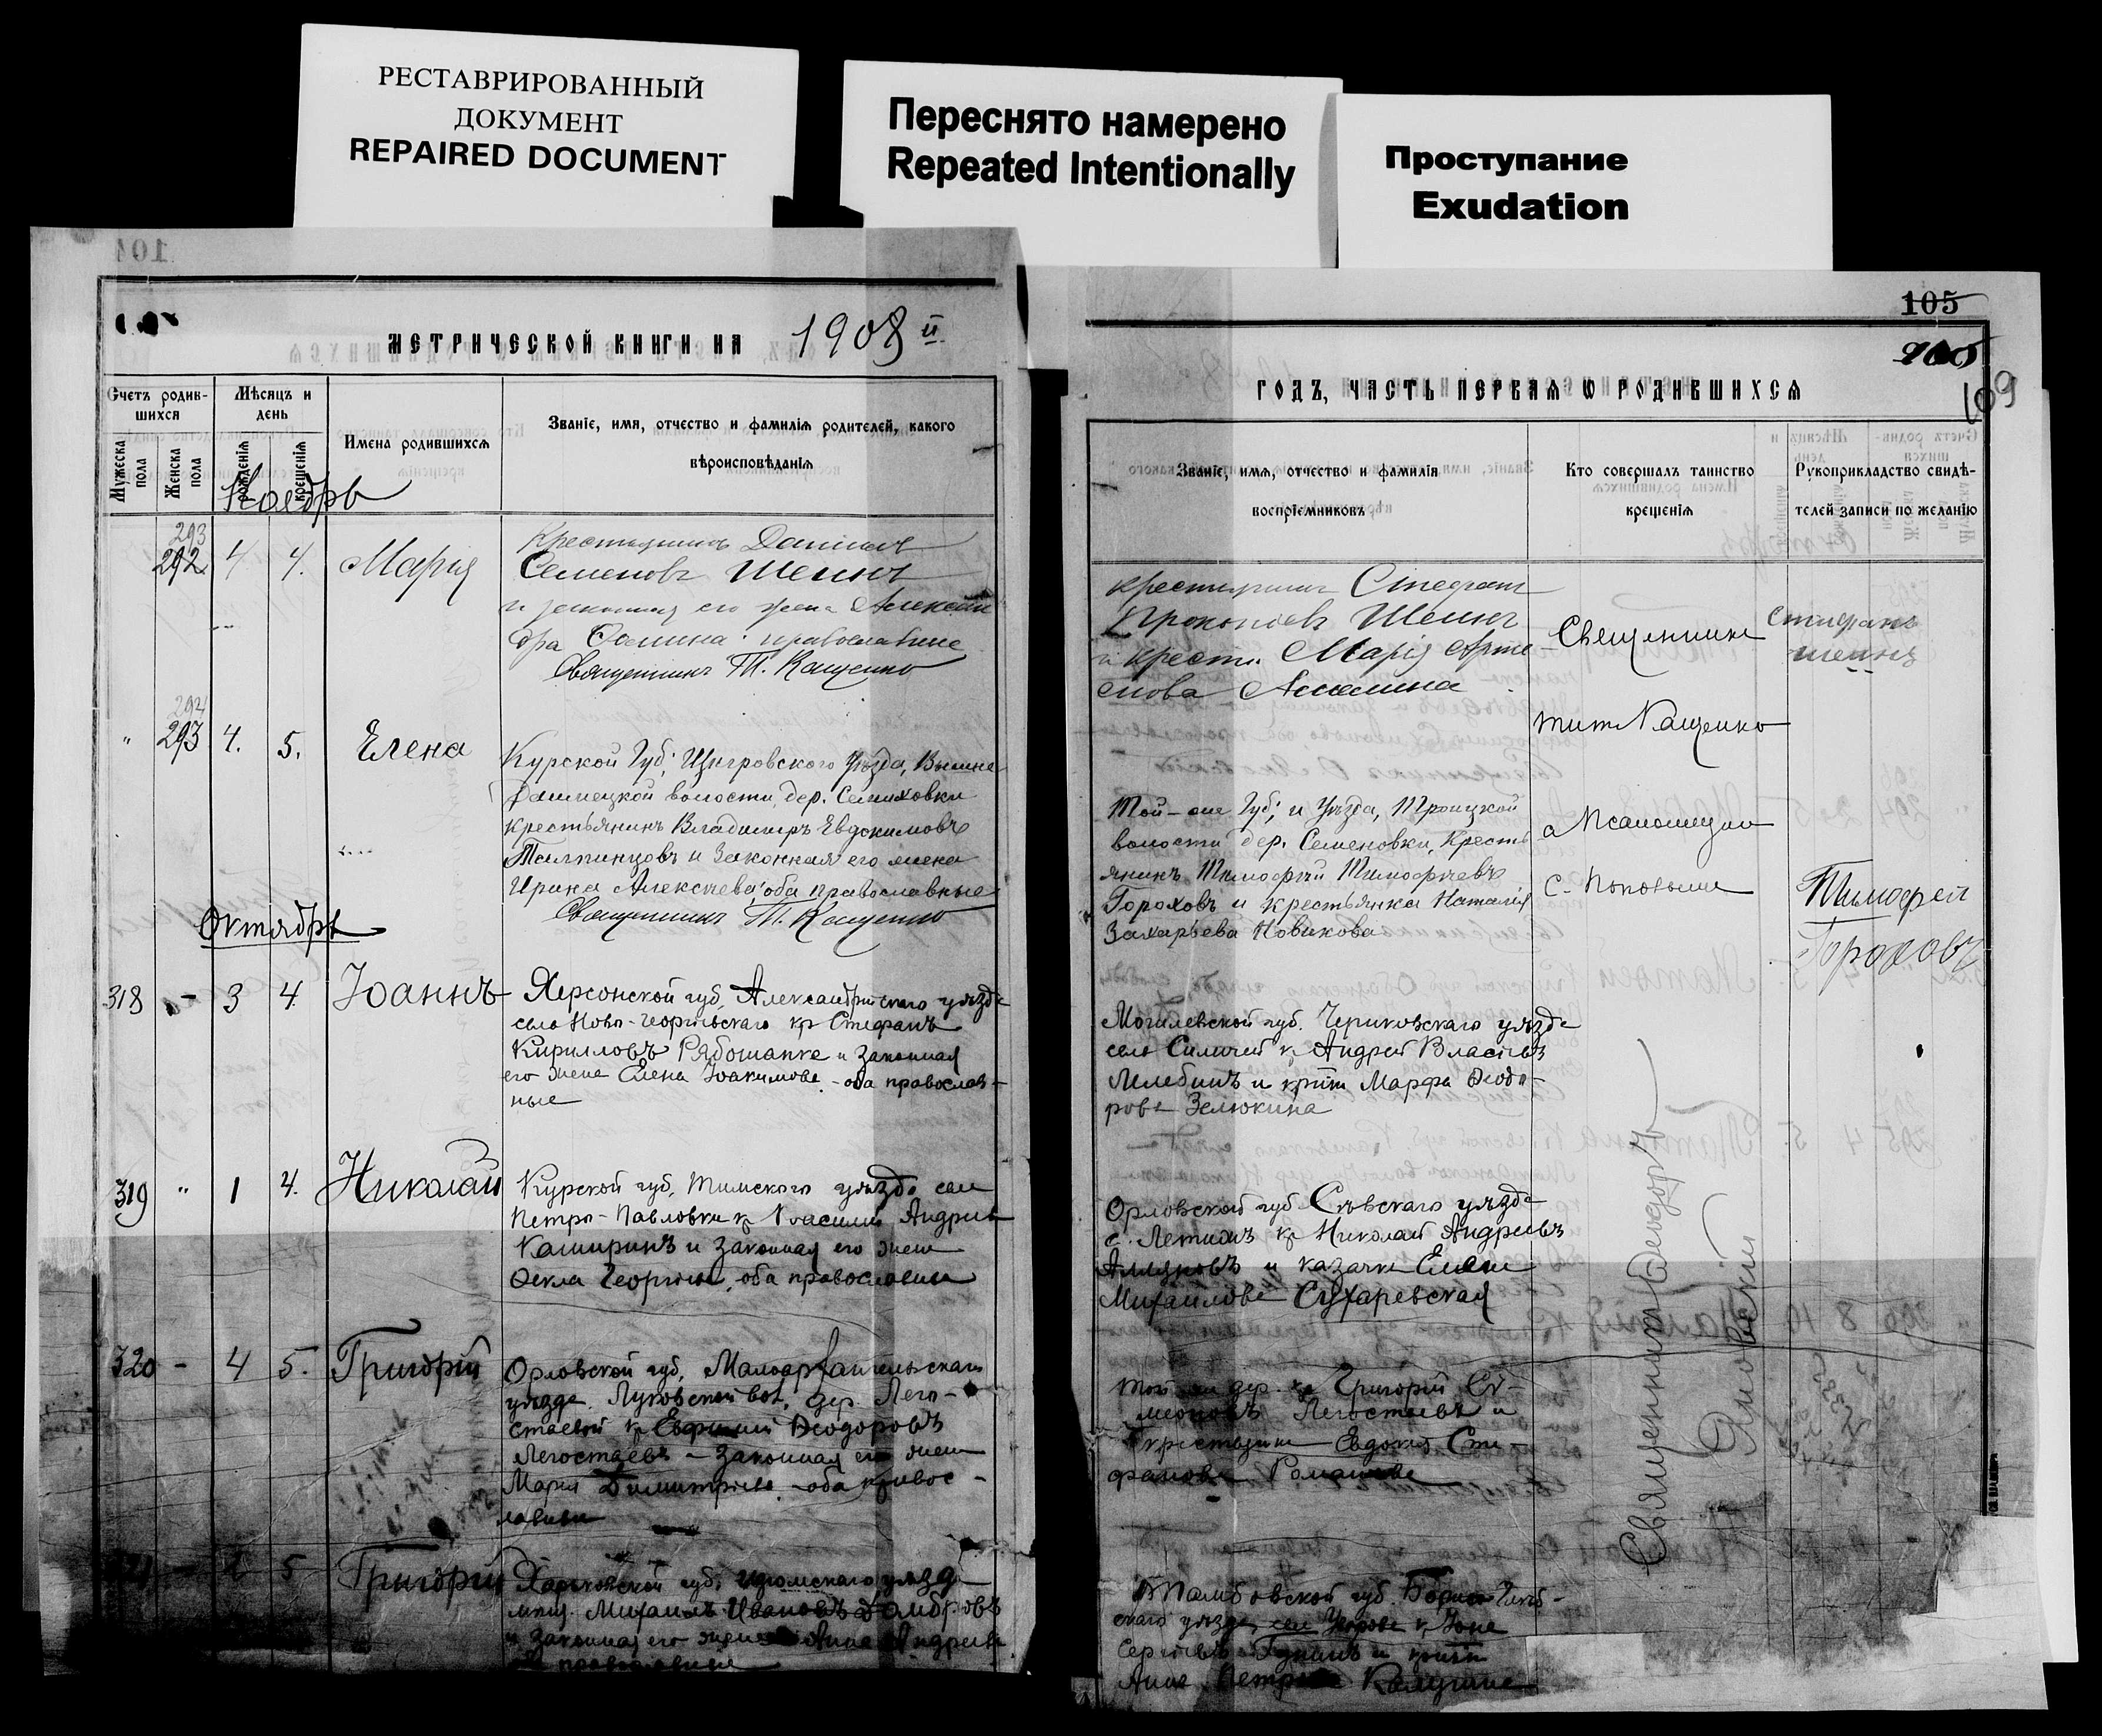 РЕСТАВРИРОВАННЫЙ
ДОКУМЕНТ
REPAIRED DOCUMENT
Переснято намерено
Repeated Intentionally
Проступание
Exudation
МЕТРИЧЕСКОЙ КНИГИ НА 1908 й
Счетъ родив-
шихся
Мужеска пола
Женска пола
Мѣсяцъ и
день
рожденія
крещенія
Имена родившихся
Званіе, имя, отчество и фамилія родителей, какого
вѣроисповѣданія
Ноябрь
293
292 4 4. Марія
Крестьянинъ Даніилъ
Семеновъ Шеинъ
и законная его жена Алексан
дра православные
Священникъ Т. Кащенко
294
" 293 4. 5. Елена
Курской Губ; Щигровского Уѣзда,
волости, дер. Семиховки
крестьянинъ Владимиръ Евдокимовъ
и Законная его жена
Ирина Алексѣева, оба православные
Священникъ Т. Кащенко
Октябрь
318 - 3 4 Іоаннъ
Херсонской губ, Александрійскаго уѣзда
село Ново-Георгіевскаго кр Стефанъ
Кирилловъ Рябошапка и законная
его жена Елена Іоакимова - оба православ-
ные
319 " 1 4. Николай
Курской губ, Тимского уѣзда села
Петро-Павловки кр Василій Андреевъ
Каширинъ и законная его жена
Ѳекла Георгіева, оба православные
320 - 4 5. Григорій
Орловской губ, Малоархангельскаго
уѣзда. Луковской вол, дер. Лего-
стаевой кр Евфимій Ѳеодоровъ
Легостаевъ - законная его жена
Марія Димитріева - оба правос-
лавные
321 - 5 Григорій
Харьковской губ, Изюмскаго уѣзда
мѣщ. Михаилъ Ивановъ
и законная его жена Анна Андреева
православные
105
109
ГОДЪ, ЧАСТЬ ПЕРВАЯ О РОДИВШИХСЯ
Званіе, имя, отчество и фамилія
воспріемниковъ
Кто совершалъ таинство
крещенія
Рукоприкладство свидѣ-
телей записи по желанію
крестьянинъ Стефанъ
Прокопіевъ Шеинъ
и крест. Марія Арте
мова
Священникъ
Тит Кащенко
с Псаломщико
с. Поповым
Стефанъ
Шеинъ
Той-же Губ; и Уѣзда, Троицкой
волости дер. Семеновки, Кресть
янинъ Тимофѣй Тимофѣевъ
Гороховъ и крестьянка Наталія
Захарьева Новикова
Тимофей
Гороховъ
Могилевской губ. Чериковскаго уѣзда
село кр Андрей Власіевъ
и кр-ка Марфа Ѳеодо-
рова Зелюкина
Орловской губ Сѣвскаго уѣзда
с. кр Николай Андреевъ
и казачка Елена
Михайлова Сухаревская
Той же дер. кр Григорій Си-
меоновъ Легостаевъ и
крестьянка Евдокія Сте-
фанова Романова
Тамбовской губ. Борисоглѣб-
скаго уѣзда, села кр Іона
Сергѣевъ и кр-ка
Анна Петрова Калугина
Священникъ Ѳеодоръ
Яновскій